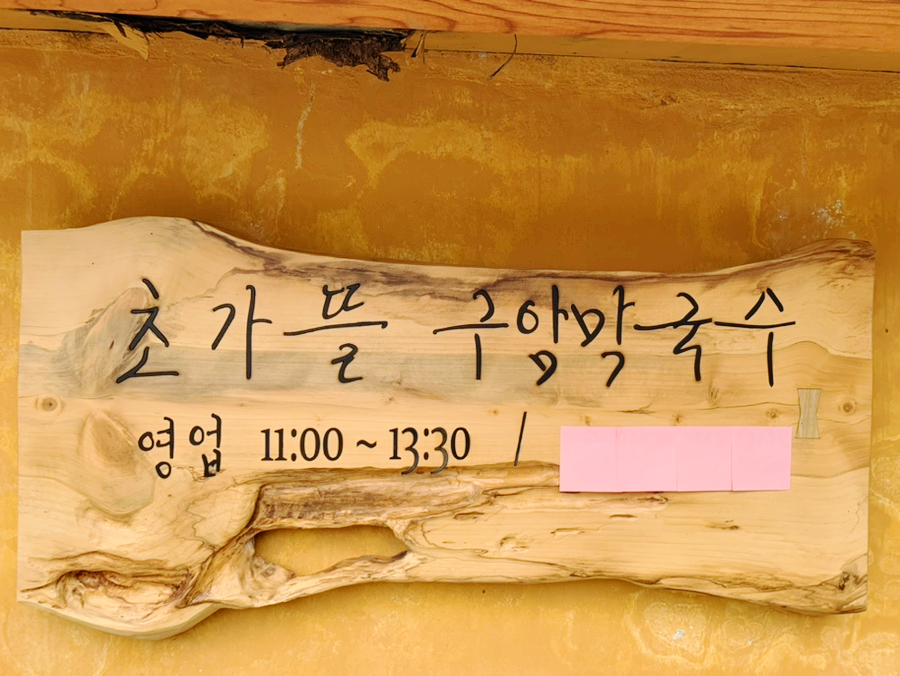 초가뜰 구암막국수
영업 11:00 ~ 13:30 /